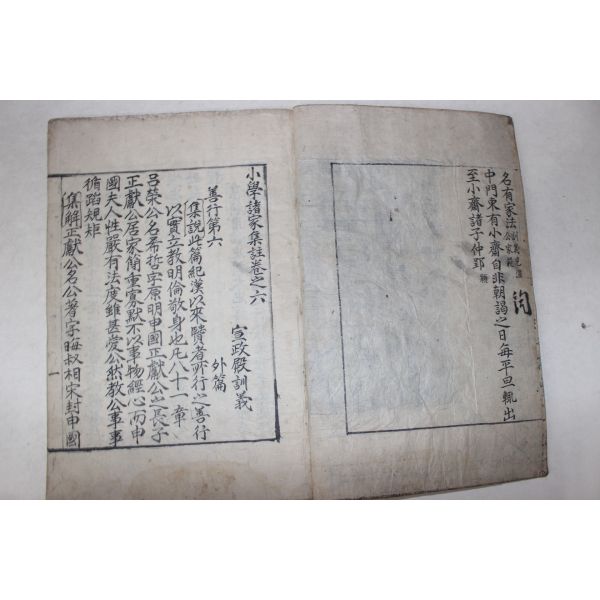 名有家法
中門東有小齋自非朝謁之日每平旦輒出
至小齋諸子仲郢
小學諸家集註卷之六
宣政殿訓義
外篇
善行第六
集說此篇紀漢以來賢者所行之善行
以實立教明倫敬身也凡八十一章
呂榮公名希哲字原明申國正獻公之長子
正獻公居家簡重寡默不以事物經心而申
國夫人性嚴有法度雖甚愛公然教公事事
循蹈規矩
集解正獻公名公著字晦叔相宋封申國
一